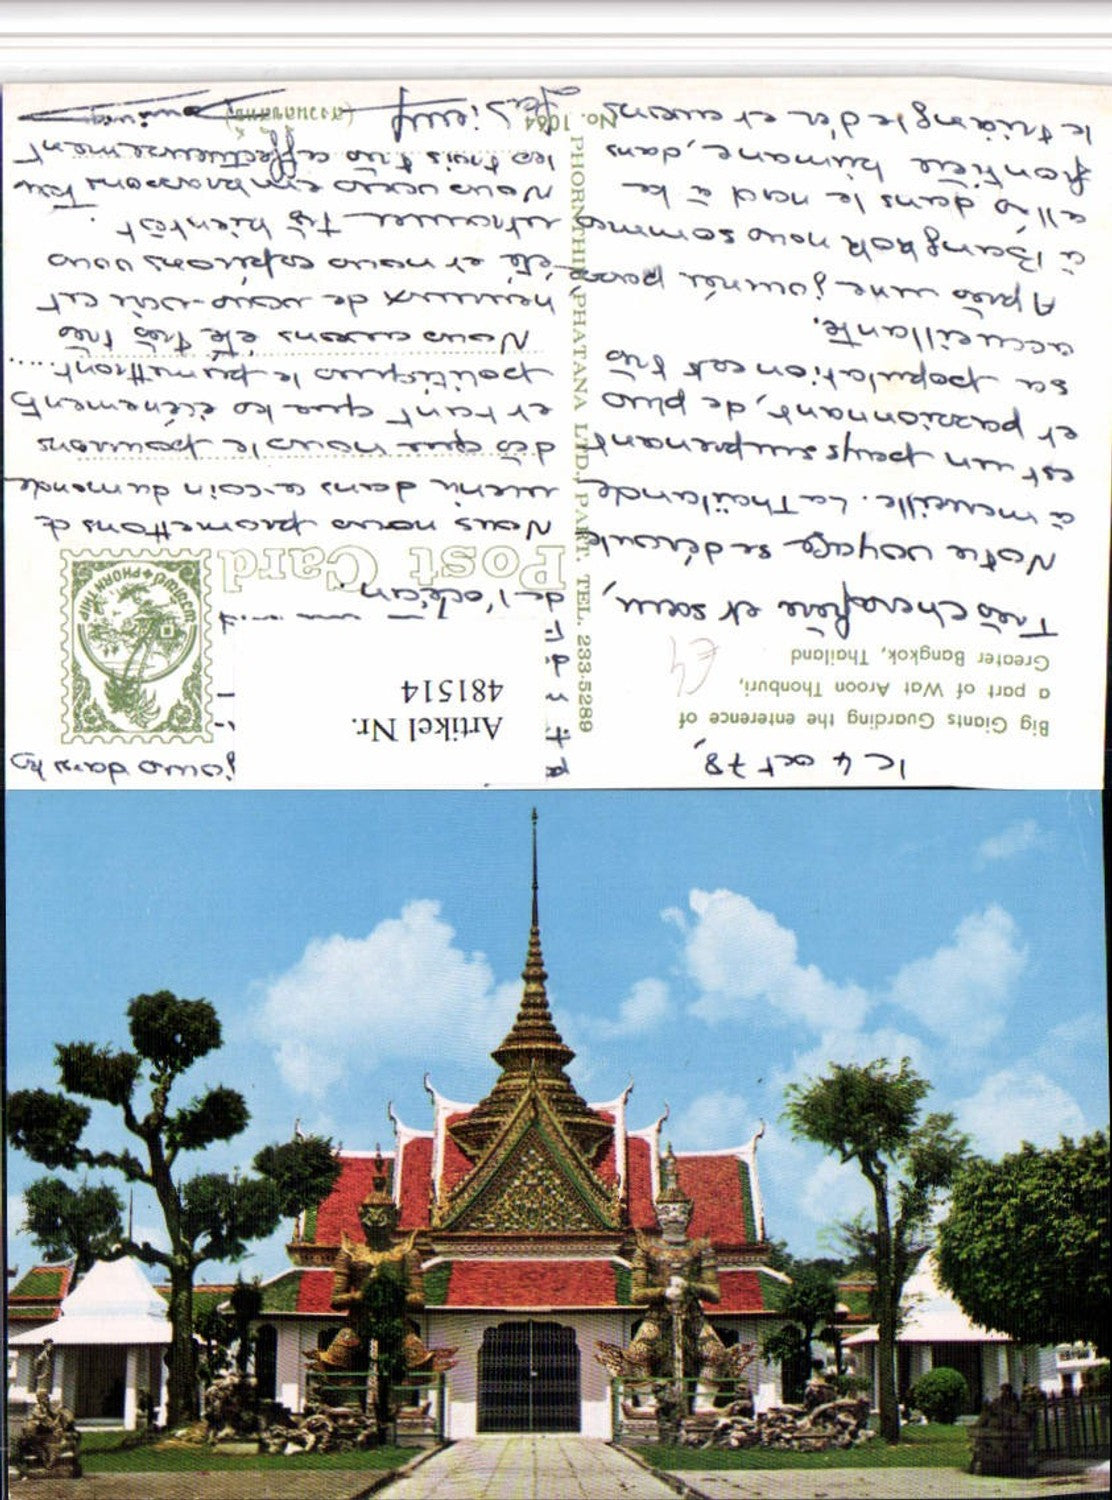 le 4 oct 78,
Big Giants Guarding the enterence of
a part of Wat Aroon Thonburi,
Greater Bangkok, Thailand
£4
Très chers frère et sœur,
Notre voyage se déroule
à merveille. La Thaïlande
est un pays surprenant
et passionnant, de plus
sa population est très
accueillante.
Après une journée passée
à Bangkok nous sommes
allés dans le nord à la
frontière birmane, dans
le triangle d'or et avons
No. 1064
PHORNTHIP PHATANA LTD., PART. TEL. 233-5289
jours dans
Artikel Nr.
481514
de l'océan.
Post Card
PHORN THIP
Nous nous promettons de
revenir dans ce coin du monde
dès que nous le pouvons
et tant que les événements
politiques le permettront.
Nous avons été très très
heureux de vous
été et nous espérons vous
retrouver très bientôt.
Nous vous embrassons tous
les trois très affectueusement
(สงวนลิขสิทธิ์)